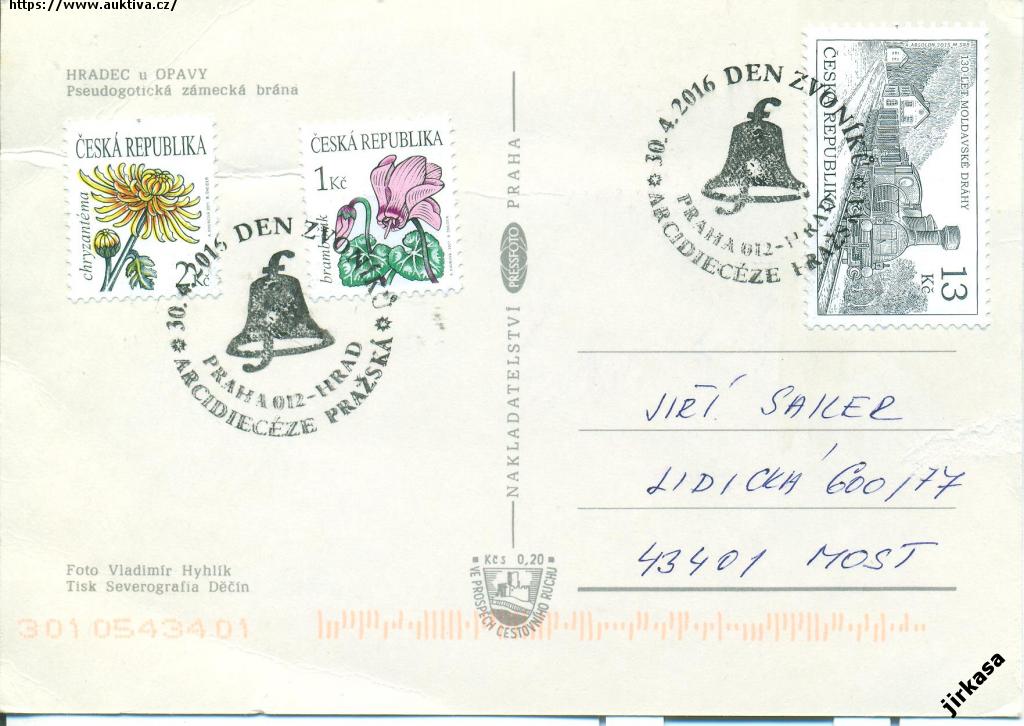 https://www.auktiva.cz/
HRADEC u OPAVY
Pseudogotická zámecká brána
ČESKÁ REPUBLIKA
chryzantéma
2 Kč
ČESKÁ REPUBLIKA
1 Kč
brambořík
30. 4. 2016 DEN ZVONÍKŮ
PRAHA 012-HRAD
ARCIDIECÉZE PRAŽSKÁ
NAKLADATELSTVÍ PRESSFOTO PRAHA
30. 4. 2016 DEN ZVONÍKŮ
PRAHA 012-HRAD
ARCIDIECÉZE PRAŽSKÁ
ČESKÁ REPUBLIKA
130 LET MOLDAVSKÉ DRÁHY
13 Kč
JIŘÍ SAILER
LIDICKÁ 600/77
43401 MOST
Foto Vladimír Hyhlík
Tisk Severografia Děčín
Kčs 0,20
VE PROSPĚCH CESTOVNÍHO RUCHU
301 05434 01
jirkasa